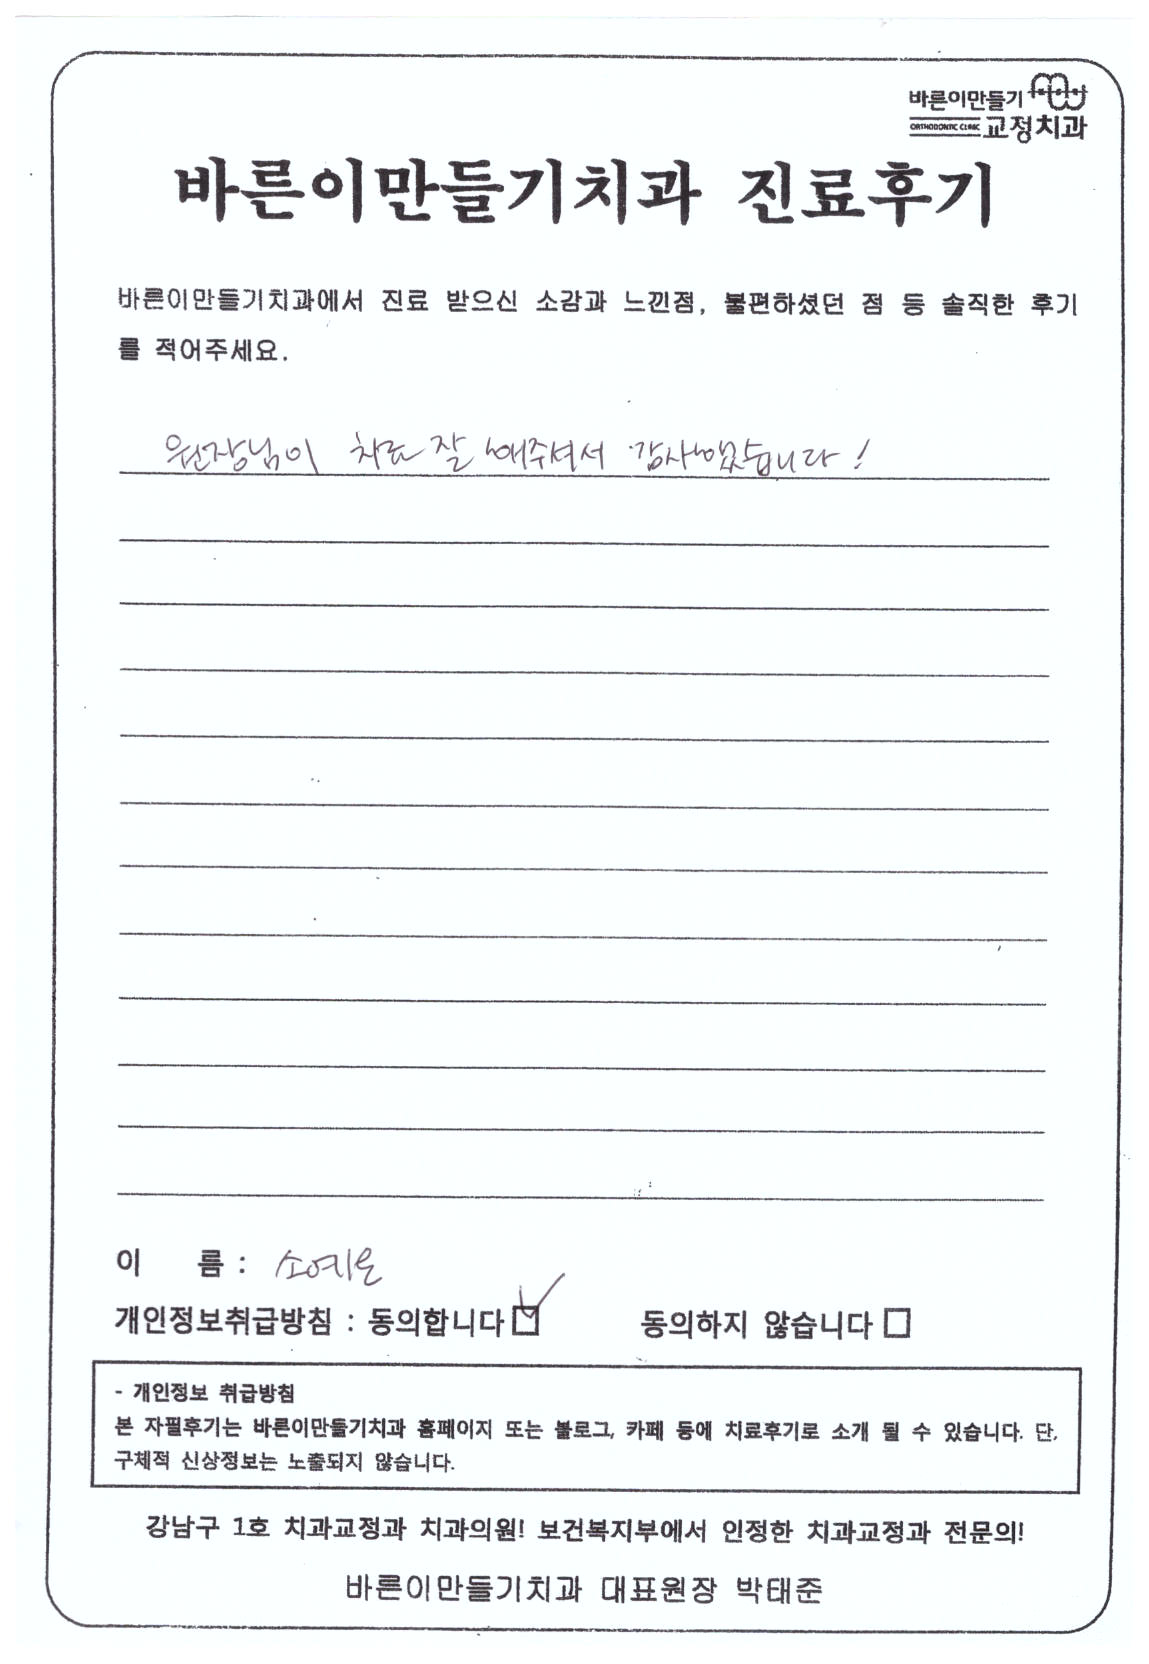 바른이만들기
ORTHODONTIC CLINIC 교정치과
바른이만들기치과 진료후기
바른이만들기치과에서 진료 받으신 소감과 느낀점, 불편하셨던 점 등 솔직한 후기
를 적어주세요.
원장님이 치료 잘 해주셔서 감사했습니다!
이 름 : 소예은
개인정보취급방침 : 동의합니다 동의하지 않습니다
- 개인정보 취급방침
본 자필후기는 바른이만들기치과 홈페이지 또는 블로그, 카페 등에 치료후기로 소개 될 수 있습니다. 단,
구체적 신상정보는 노출되지 않습니다.
강남구 1호 치과교정과 치과의원! 보건복지부에서 인정한 치과교정과 전문의!
바른이만들기치과 대표원장 박태준